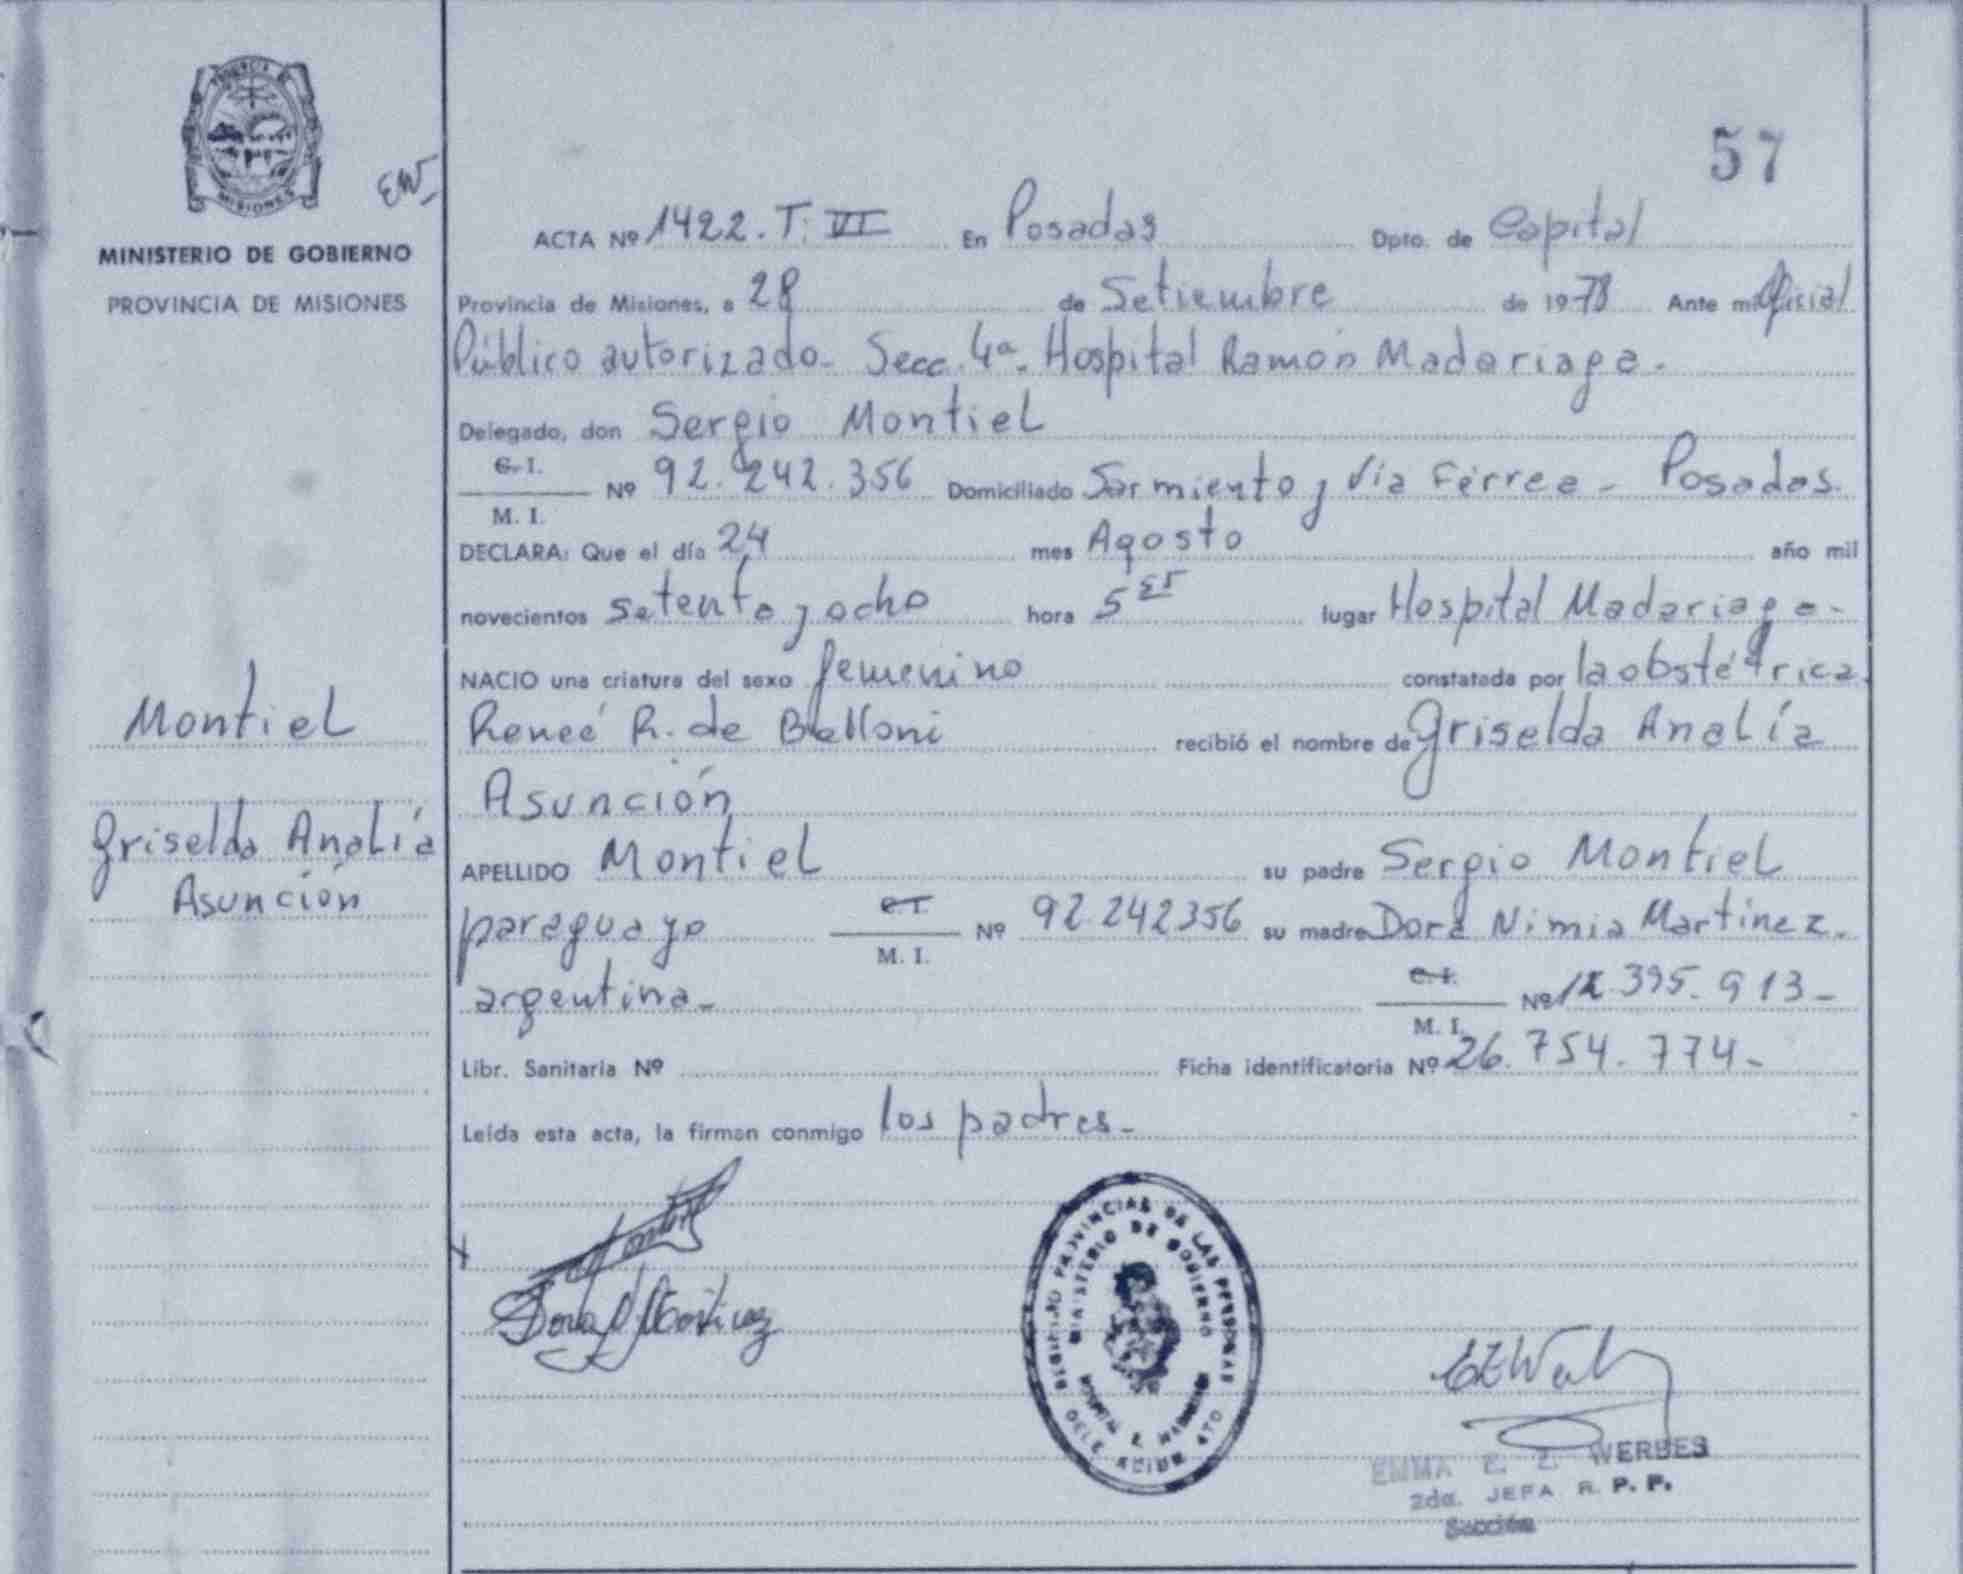 PROVINCIA DE
MISIONES
EW
MINISTERIO DE GOBIERNO
PROVINCIA DE MISIONES
57
ACTA Nº 1422. T. VI En Posadas Dpto. de Capital
Provincia de Misiones, a 28 de Setiembre de 1978 Ante mi Oficial
Público autorizado- Secc. 4ª. Hospital Ramón Madariaga.
Delegado, don Sergio Montiel
C. I.
M. I. Nº 92.242.356 Domiciliado Sarmiento y Vía Férrea - Posadas.
DECLARA: Que el día 24 mes Agosto año mil
novecientos setenta y ocho hora 5 lugar Hospital Madariaga-
NACIO una criatura del sexo femenino constatada por la obstétrica
Reneé R. de Belloni recibió el nombre de Griselda Analía
Asunción
APELLIDO Montiel su padre Sergio Montiel
paraguayo C.I.
M. I. Nº 92.242356 su madre Dora Nimia Martínez.
argentina- C.I.
M. I. Nº 395.913-
Libr. Sanitaria Nº Ficha identificatoria Nº 26.754.774-
Leída esta acta, la firman conmigo los padres-
Montiel
Griselda Analía
Asunción
Dora N Martinez
PROVINCIAS DE LAS PERSONAS
MINISTERIO DE GOBIERNO
EMMA E. Z. WERBES
2da. JEFA R. P. P.
Sección